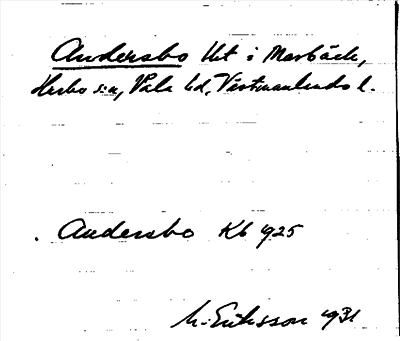 Andersbo Ut i Marbäck,
Huddo s:n, Våla hd, Västmanlands l.
Andersbo Kb 1925
M. Eriksson 1931